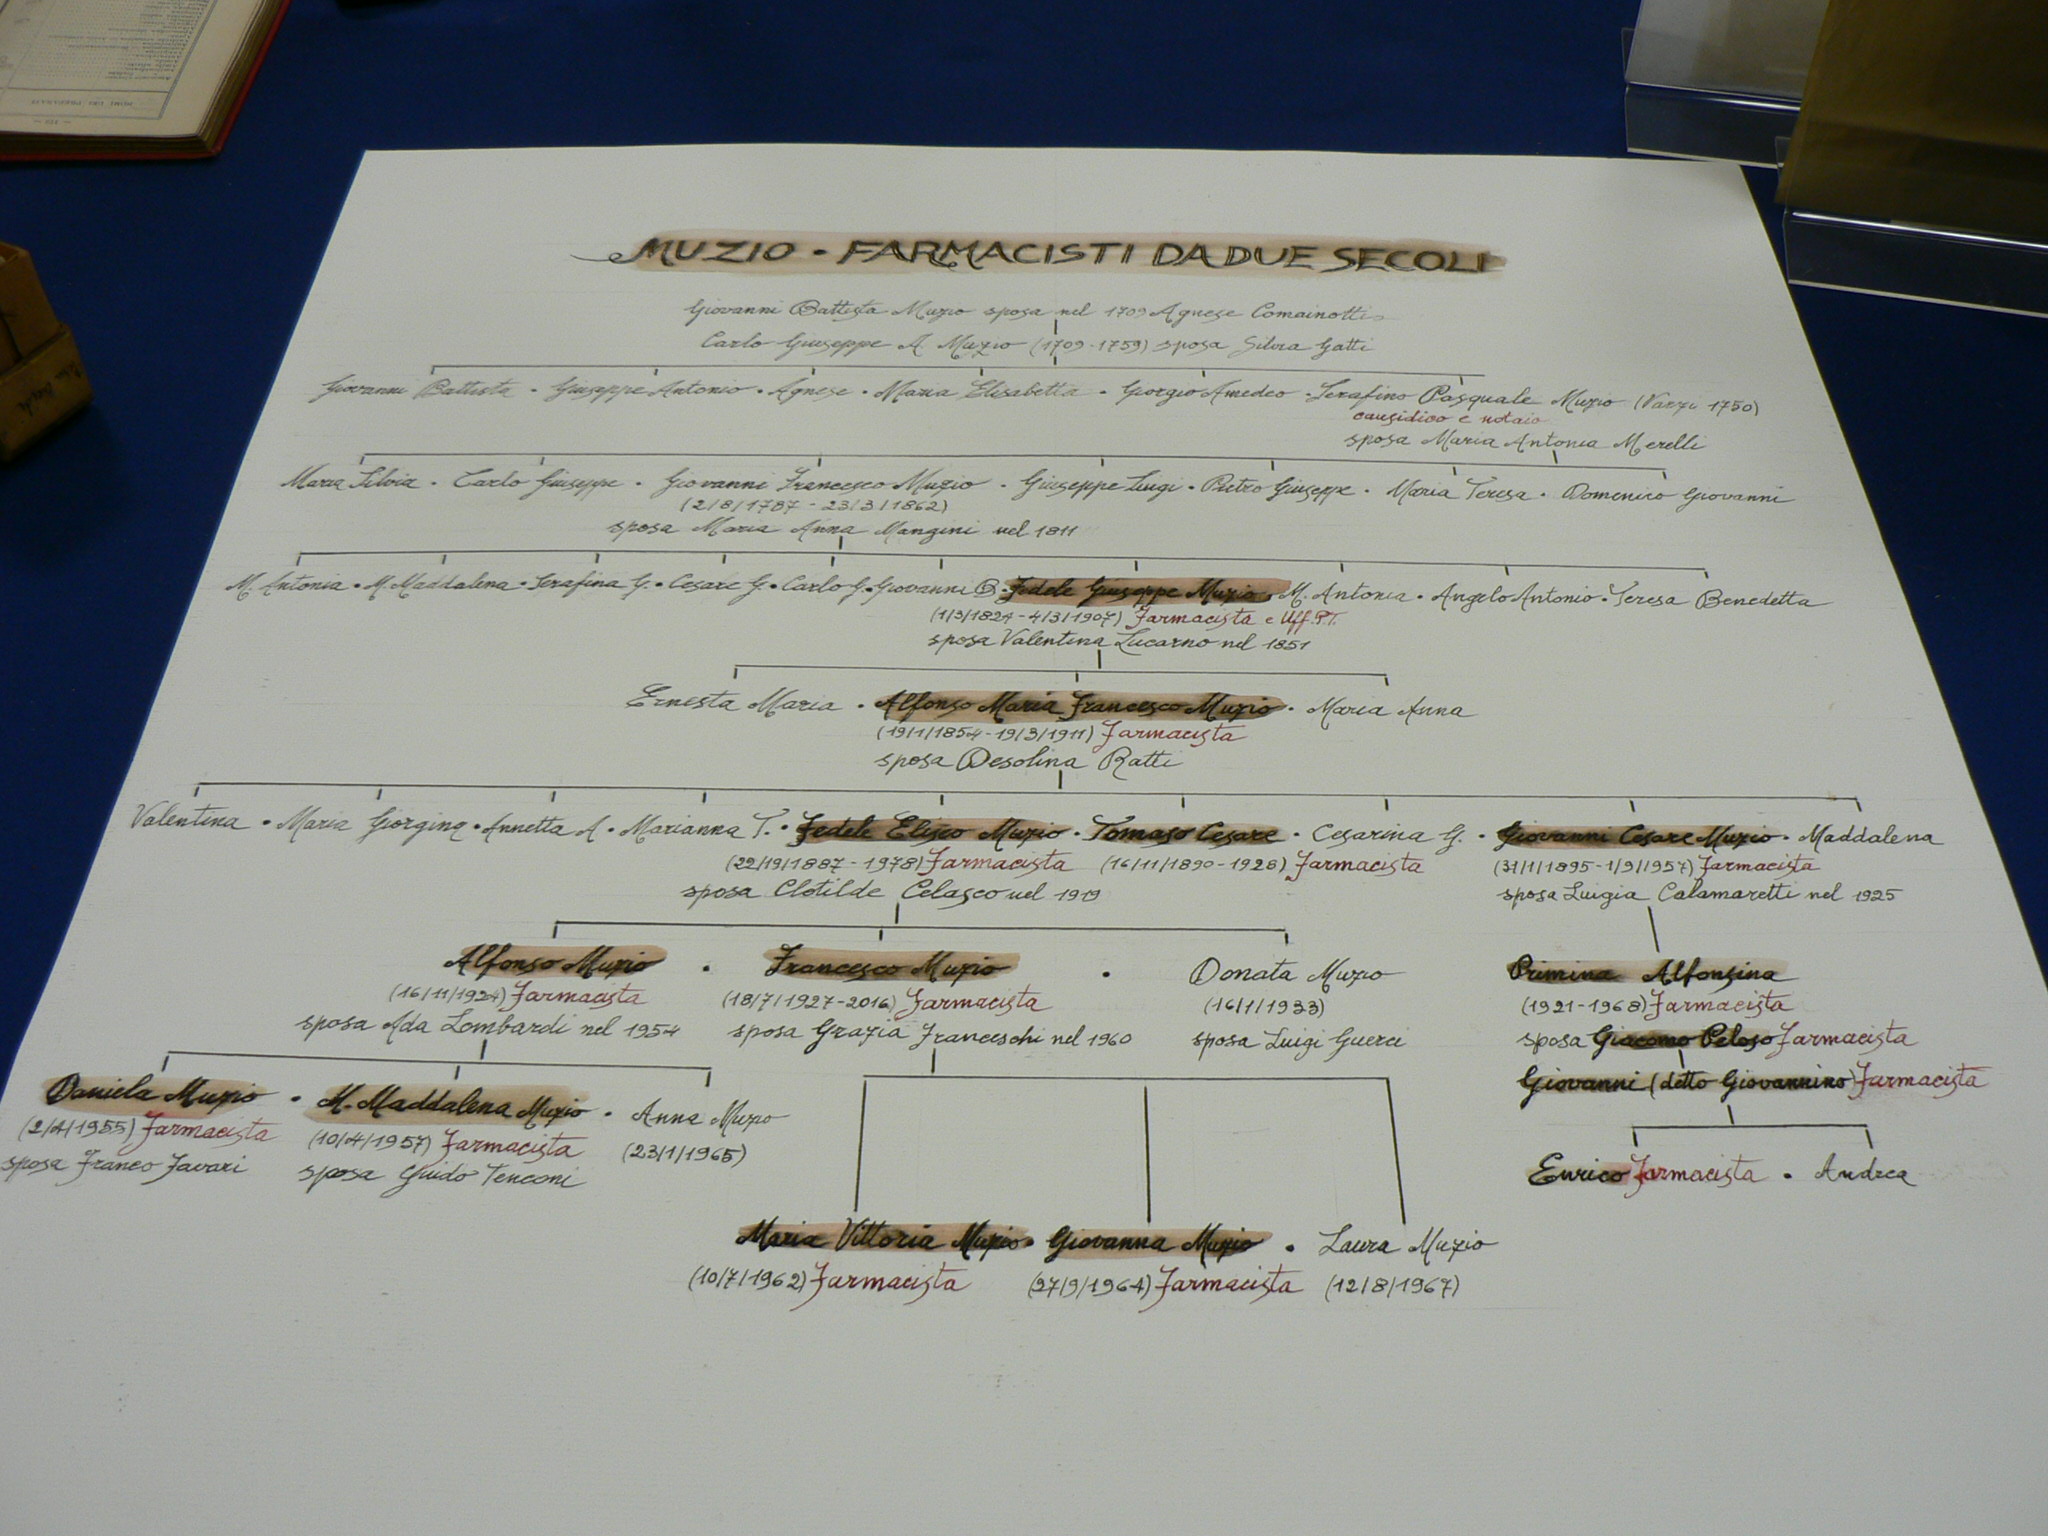 MUZIO • FARMACISTI DA DUE SECOLI
Giovanni Battista Muzio sposa nel 1709 Agnese Comainotti
Carlo Giuseppe A. Muzio (1709-1759) sposa Silvia Gatti
Giovanni Battista • Giuseppe Antonio • Agnese • Maria Elisabetta • Giorgio Amedeo • Serafino Pasquale Muzio (Varzi 1750)
causidico e notaio
sposa Maria Antonia Merelli
Maria Silvia • Carlo Giuseppe • Giovanni Francesco Muzio • Giuseppe Luigi • Pietro Giuseppe • Maria Teresa • Domenico Giovanni
(2/8/1787 - 23/3/1862)
sposa Maria Anna Mangini nel 1811
M. Antonia • M. Maddalena • Serafina G. • Cesare G. • Carlo G. • Giovanni B. • Fedele Giuseppe Muzio • M. Antonia • Angelo Antonio • Teresa Benedetta
(1/3/1824 - 4/3/1907) Farmacista e Uff. P.T.
sposa Valentina Lucarno nel 1851
Ernesta Maria • Alfonso Maria Francesco Muzio • Maria Anna
(19/1/1854 - 19/3/1911) Farmacista
sposa Desolina Ratti
Valentina • Maria Giorgina • Annetta A. • Marianna T. • Fedele Eliseo Muzio • Tomaso Cesare • Cesarina G. • Giovanni Cesare Muzio • Maddalena
(22/19/1887 - 1978) Farmacista (16/11/1890 - 1928) Farmacista (31/1/1895 - 1/9/1957) Farmacista
sposa Clotilde Celasco nel 1919 sposa Luigia Calamaretti nel 1925
Alfonso Muzio • Francesco Muzio • Donata Muzio Primina Alfonsina
(16/11/1924) Farmacista (18/7/1927-2016) Farmacista (16/1/1933) (1921-1968) Farmacista
sposa Ada Lombardi nel 1954 sposa Grazia Franceschi nel 1960 sposa Luigi Guerci sposa Giacomo Peloso Farmacista
Giovanni (detto Giovannino) Farmacista
Daniela Muzio • M. Maddalena Muzio • Anna Muzio
(2/4/1955) Farmacista (10/4/1957) Farmacista (23/1/1965)
sposa Franco Favari sposa Guido Tenconi
Enrico Farmacista • Andrea
Maria Vittoria Muzio • Giovanna Muzio • Laura Muzio
(10/7/1962) Farmacista (27/9/1964) Farmacista (12/8/1967)